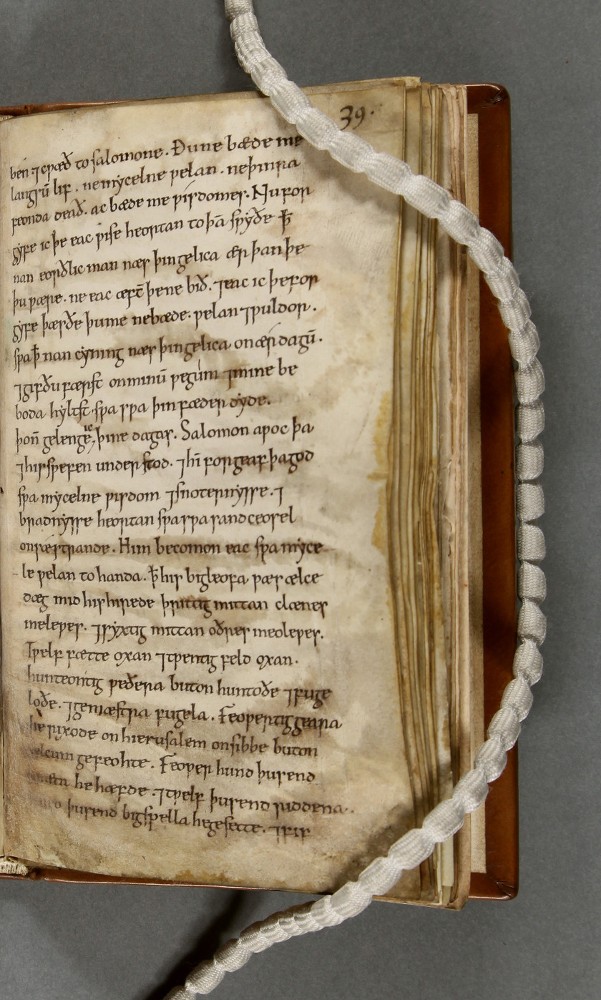 39.
ben ⁊ cƿæð to salomone. Ðu ne bæde me
langsū lif. ne mycelne ƿelan. ne þinra
feonda deað. ac bæde me ƿisdomes. Nu for
gyfe ic þe eac ƿise heortan to þā sƿyðe ꝥ
nan eorðlic man næs þin gelica ær þan þe
þu ƿære. ne eac æft̄ þe ne bið. ⁊ eac ic þe for
gyfe þæs ðe þu me ne bæde. ƿelan ⁊ ƿuldor.
sƿa ꝥ nan cyning næs þin gelica on ær dagū.
⁊ gif ðu færst on minū ƿegum ⁊ mine be
boda hyltst. sƿa sƿa þin fæder dyde.
þon̄ gelenge ic þine dagas. Salomon aƿoc þa
⁊ his sƿefen understod. ⁊ hī forgeaf þa god
sƿa mycelne ƿisdom ⁊ snoternysse. ⁊
bradnysse heortan sƿa sƿa sandceosel
on sæ strande. Him becomon eac sƿa myce
le ƿelan to handa. ꝥ his bigleofa ƿæs ælce
dæg mid his hirede þrittig mittan clænes
meleƿes. ⁊ syxtig mittan oðres meoleƿes.
⁊ tƿelf fætte oxan ⁊ tƿentig feld oxan.
hunteontig ƿeðera buton huntoðe ⁊ fuge
loðe. ⁊ gemæstra fugela. Feoƿertig geara
he rixode on hierusalem on sibbe buton
ælcum gefeohte. Feoƿer hund þusend
he hæfde. ⁊ tƿelf þusend riddena.
þusend bigspella he gesette. ⁊ fif